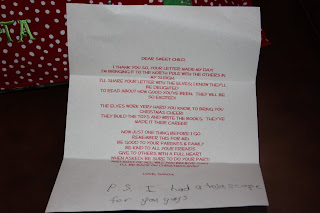 TA
DEAR SWEET CHILD,
I THANK YOU SO, YOUR LETTER MADE MY DAY!
I'M BRINGING IT TO THE NORTH POLE WITH THE OTHERS IN
MY SLEIGH.
I'LL SHARE YOUR LETTER WITH THE ELVES, I KNOW THEY'LL
BE DELIGHTED
TO READ ABOUT HOW GOOD YOU'VE BEEN. THEY WILL BE
SO EXCITED!
THE ELVES WORK VERY HARD YOU KNOW, TO BRING YOU
CHRISTMAS CHEER!
THEY BUILD THE TOYS AND WRITE THE BOOKS. THEY'VE
MADE IT THEIR CAREER!
NOW JUST ONE THING BEFORE I GO
REMEMBER THIS FOR ME:
BE GOOD TO YOUR PARENTS & FAMILY
BE KIND TO ALL YOUR FRIENDS,
GIVE TO OTHERS WITH A FULL HEART
WHEN ASKED BE SURE TO DO YOUR PART!
P.S. I had a
for you guys